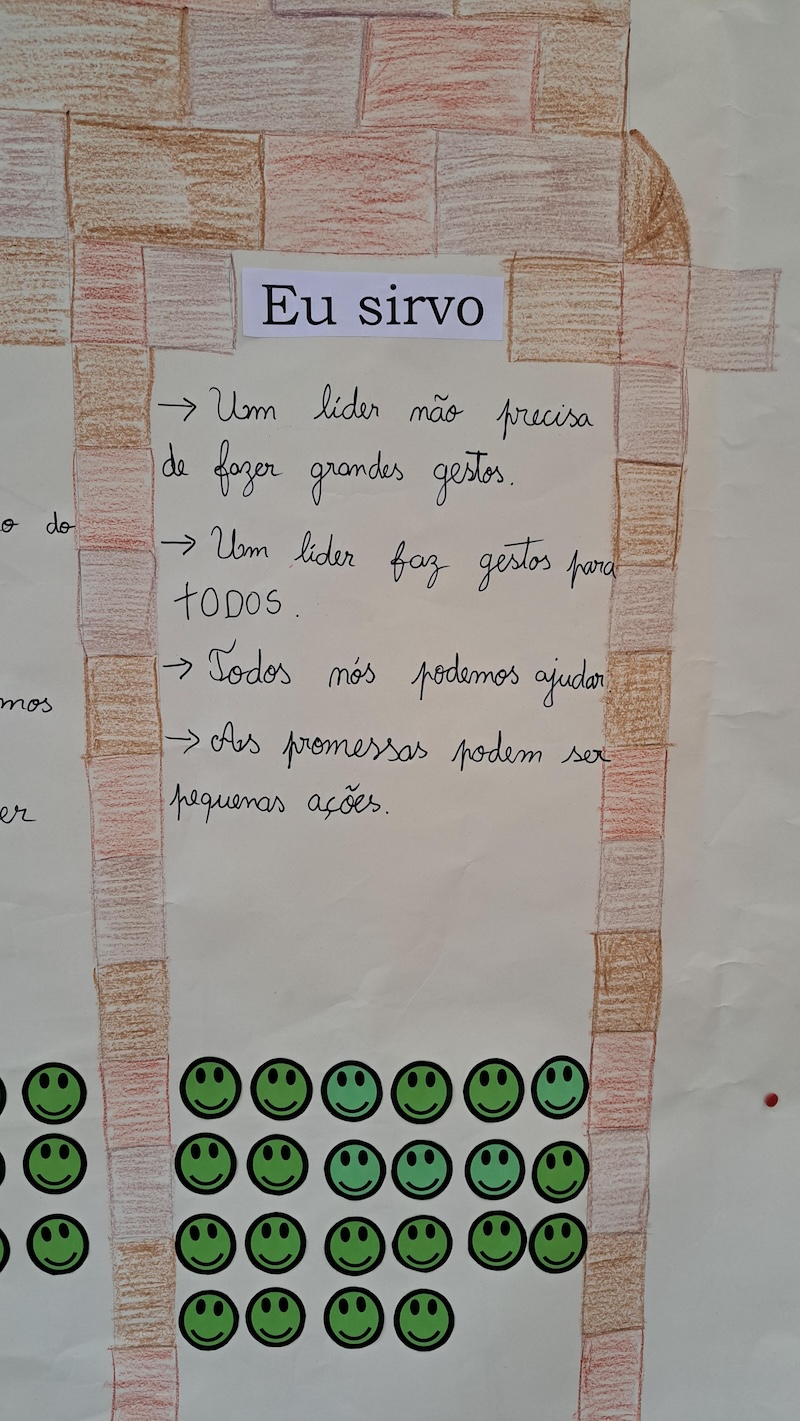 Eu sirvo
→ Um líder não precisa
de fazer grandes gestos.
→ Um líder faz gestos para
TODOS.
→ Todos nós podemos ajudar.
→ As promessas podem ser
pequenas ações.
o do
mos
er